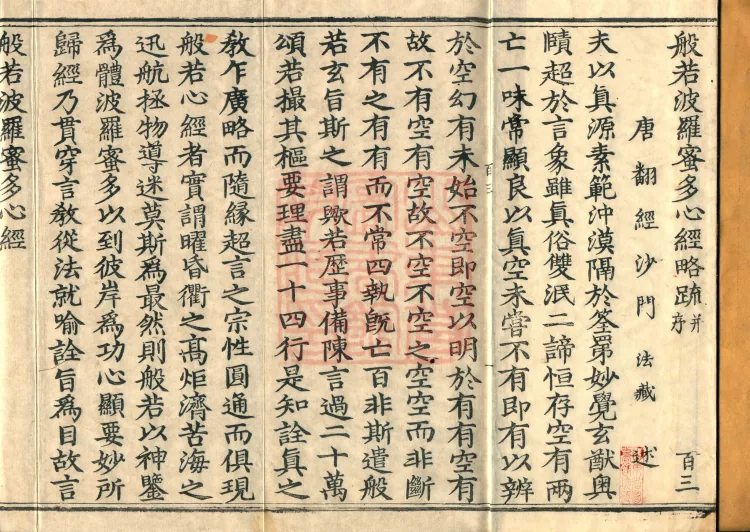 般若波羅蜜多心經略䟽并序 百三
唐翻經沙門 法藏 述
夫以真源素範沖漠隔於筌罤妙覺玄猷奧
賾超於言象雖真俗雙泯二諦恒存空有兩
亡一味常顯良以真空未嘗不有即有以辨
於空幻有未始不空即空以明於有有空有
故不有空有空故不空不空之空空而非斷
不有之有有而不常四執旣亡百非斯遣般
若玄旨斯之謂歟若歷事備陳言過二十萬
頌若撮其樞要理盡一十四行是知詮真之
教乍廣略而隨緣超言之宗性圓通而俱現
般若心經者實謂曜昏衢之高炬濟苦海之
迅航拯物導迷莫斯爲最然則般若以神鑒
爲體波羅蜜多以到彼岸爲功心顯要妙所
歸經乃貫穿言教從法就喻詮旨爲目故言
般若波羅蜜多心經
百三